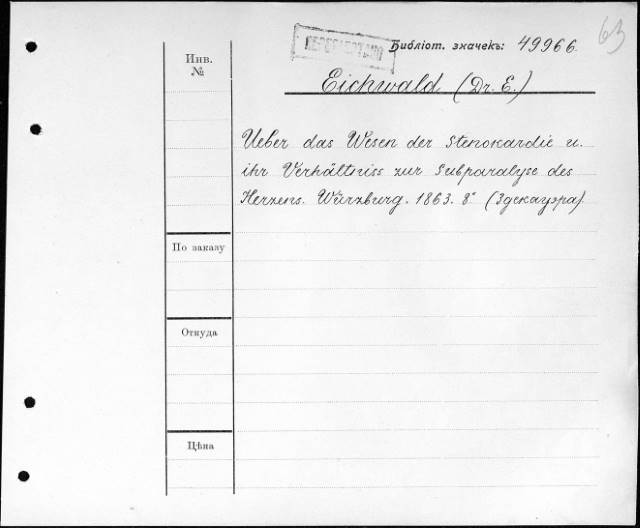 63
Библіот. значекъ: 49966.
Инв.
№
Eichwald (Dr. E.)
Ueber das Wesen der Stenokardie u.
ihr Verhältniss zur Subparalyse des
Herzens. Würzburg. 1863. 8° (Здекауэра)
По заказу
Откуда
Цѣна